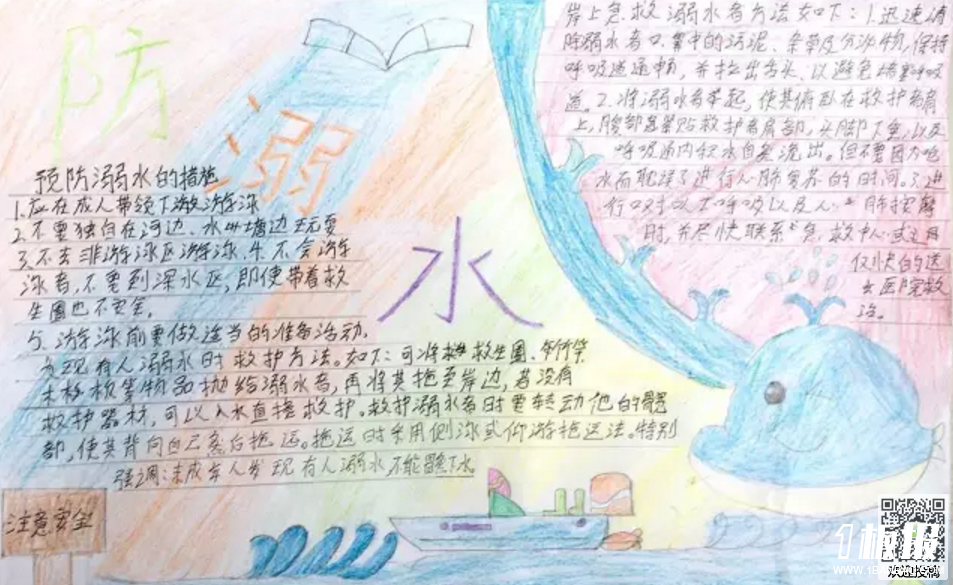 防
溺
水
预防溺水的措施
1.应在成人带领下游泳
2.不要独自在河边、水塘边玩耍
3.不去非游泳区游泳.4.不会游
泳者,不要到深水区,即使带着救
生圈也不安全.
5、游泳前要做适当的准备活动.
发现有人溺水时救护方法。如下:可将救生圈、竹竿
木板等物品抛给溺水者,再将其拖至岸边,若没有
救护器材,可以入水直接救护。救护溺水者时要转动他的髋
部,使其背向自己然后拖运。拖运时采用侧泳或仰游拖运法。特别
强调:未成年人发现有人溺水,不能下水
岸上急救溺水者方法如下:1.迅速清
除溺水者口.鼻中的污泥、杂草及分泌物,保持
呼吸道通畅,并拉出舌头,以避免堵塞呼吸
道.2.将溺水者举起,使其俯卧在救护者肩
上,腹部紧贴救护者肩部,头脚下垂,以及
呼吸道内积水自然流出。但不要因为呛
水而耽误了进行心肺复苏的时间。3.进
行口对口呼吸以及心肺按摩
时,并尽快联系急救中心或
快的送
去医院救
治。
注意安全
1板报
欢迎投稿